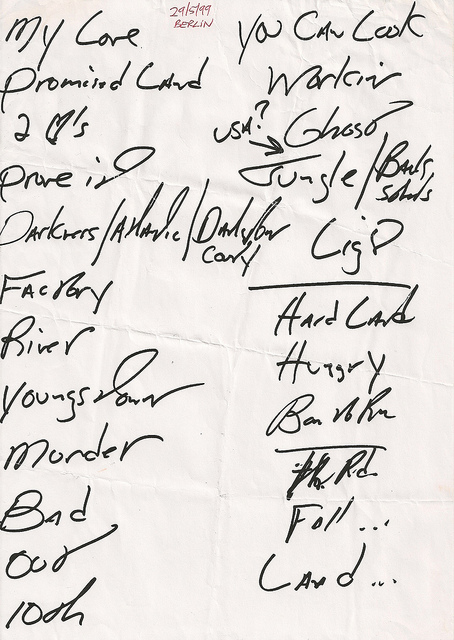 29/5/99
BERLIN
My Love
Promised Land
2 ♡'s
Prove it
Darkness / Atlantic / Darlington
County
Factory
River
Youngstown
Murder
Bad
Out
10th
You Can Look
Workin
USA? Ghost
Jungle / Badlands
Light
Hard Land
Hungry
Born to Run
Fall...
Land...